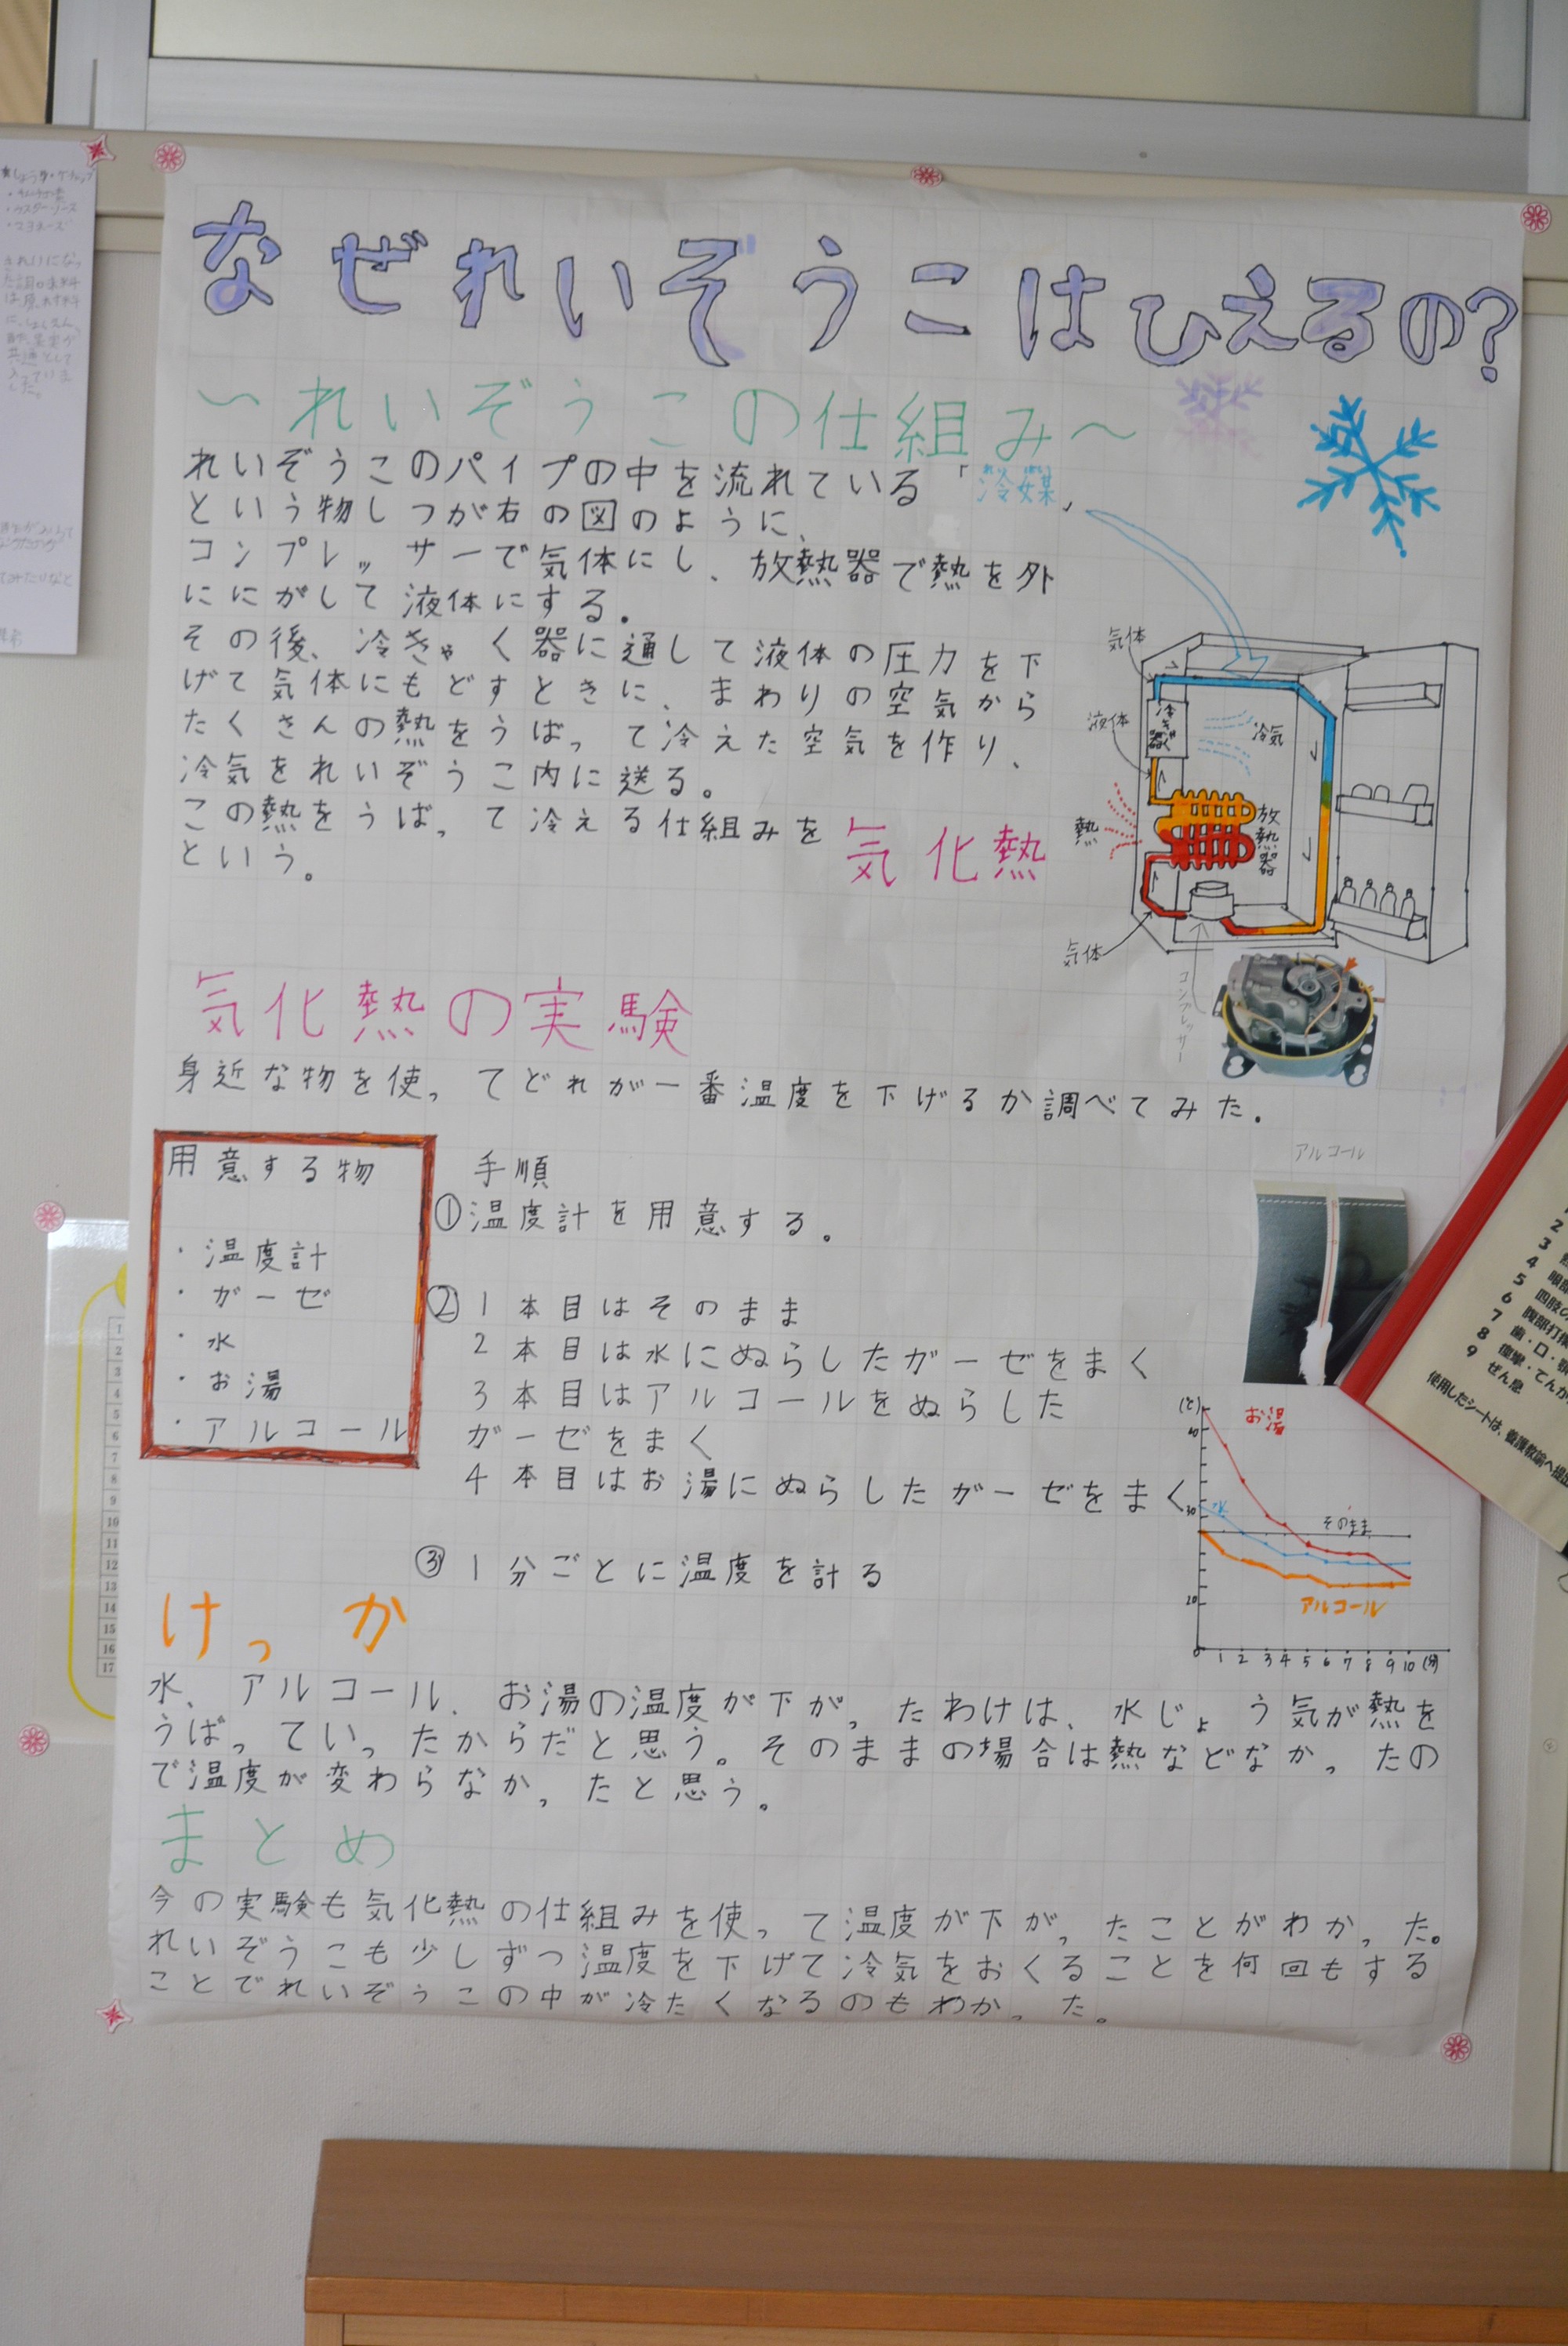 なぜれいぞうこはひえるの?
~れいぞうこの仕組み~
れいぞうこのパイプの中を流れている「冷媒」
という物しつが右の図のように、
コンプレッサーで気体にし、放熱器で熱を外
ににがして液体にする。
その後、冷きゃく器に通して液体の圧力を下
げて気体にもどすときに、まわりの空気から
たくさんの熱をうばって冷えた空気を作り、
冷気をれいぞうこ内に送る。
この熱をうばって冷える仕組みを気化熱
という。
気体
液体
冷きゃく器
冷気
熱
放熱器
気体
コンプレッサー
気化熱の実験
身近な物を使ってどれが一番温度を下げるか調べてみた。
用意する物
・温度計
・ガーゼ
・水
・お湯
・アルコール
手順
①温度計を用意する。
②1本目はそのまま
2本目は水にぬらしたガーゼをまく
3本目はアルコールをぬらした
ガーゼをまく
4本目はお湯にぬらしたガーゼをまく
③1分ごとに温度を計る
アルコール
(℃)
お湯
40
30
水
そのまま
20
アルコール
0 1 2 3 4 5 6 7 8 9 10 (分)
けっか
水、アルコール、お湯の温度が下がったわけは、水じょう気が熱を
うばっていったからだと思う。そのままの場合は熱などなかったの
で温度が変わらなかったと思う。
まとめ
今の実験も気化熱の仕組みを使って温度が下がったことがわかった。
れいぞうこも少しずつ温度を下げて冷気をおくることを何回もする
ことでれいぞうこの中が冷たくなるのもわかった。
・ウスターソース
・マヨネーズ
1
2
3
4
5
6
7
8
9
10
11
12
13
14
15
16
17
2
3
4
5 四肢の
6 腹部打撲
7 歯・口・
8 痙攣・てんか
9 ぜん息
使用したシートは、養護教諭へ提出